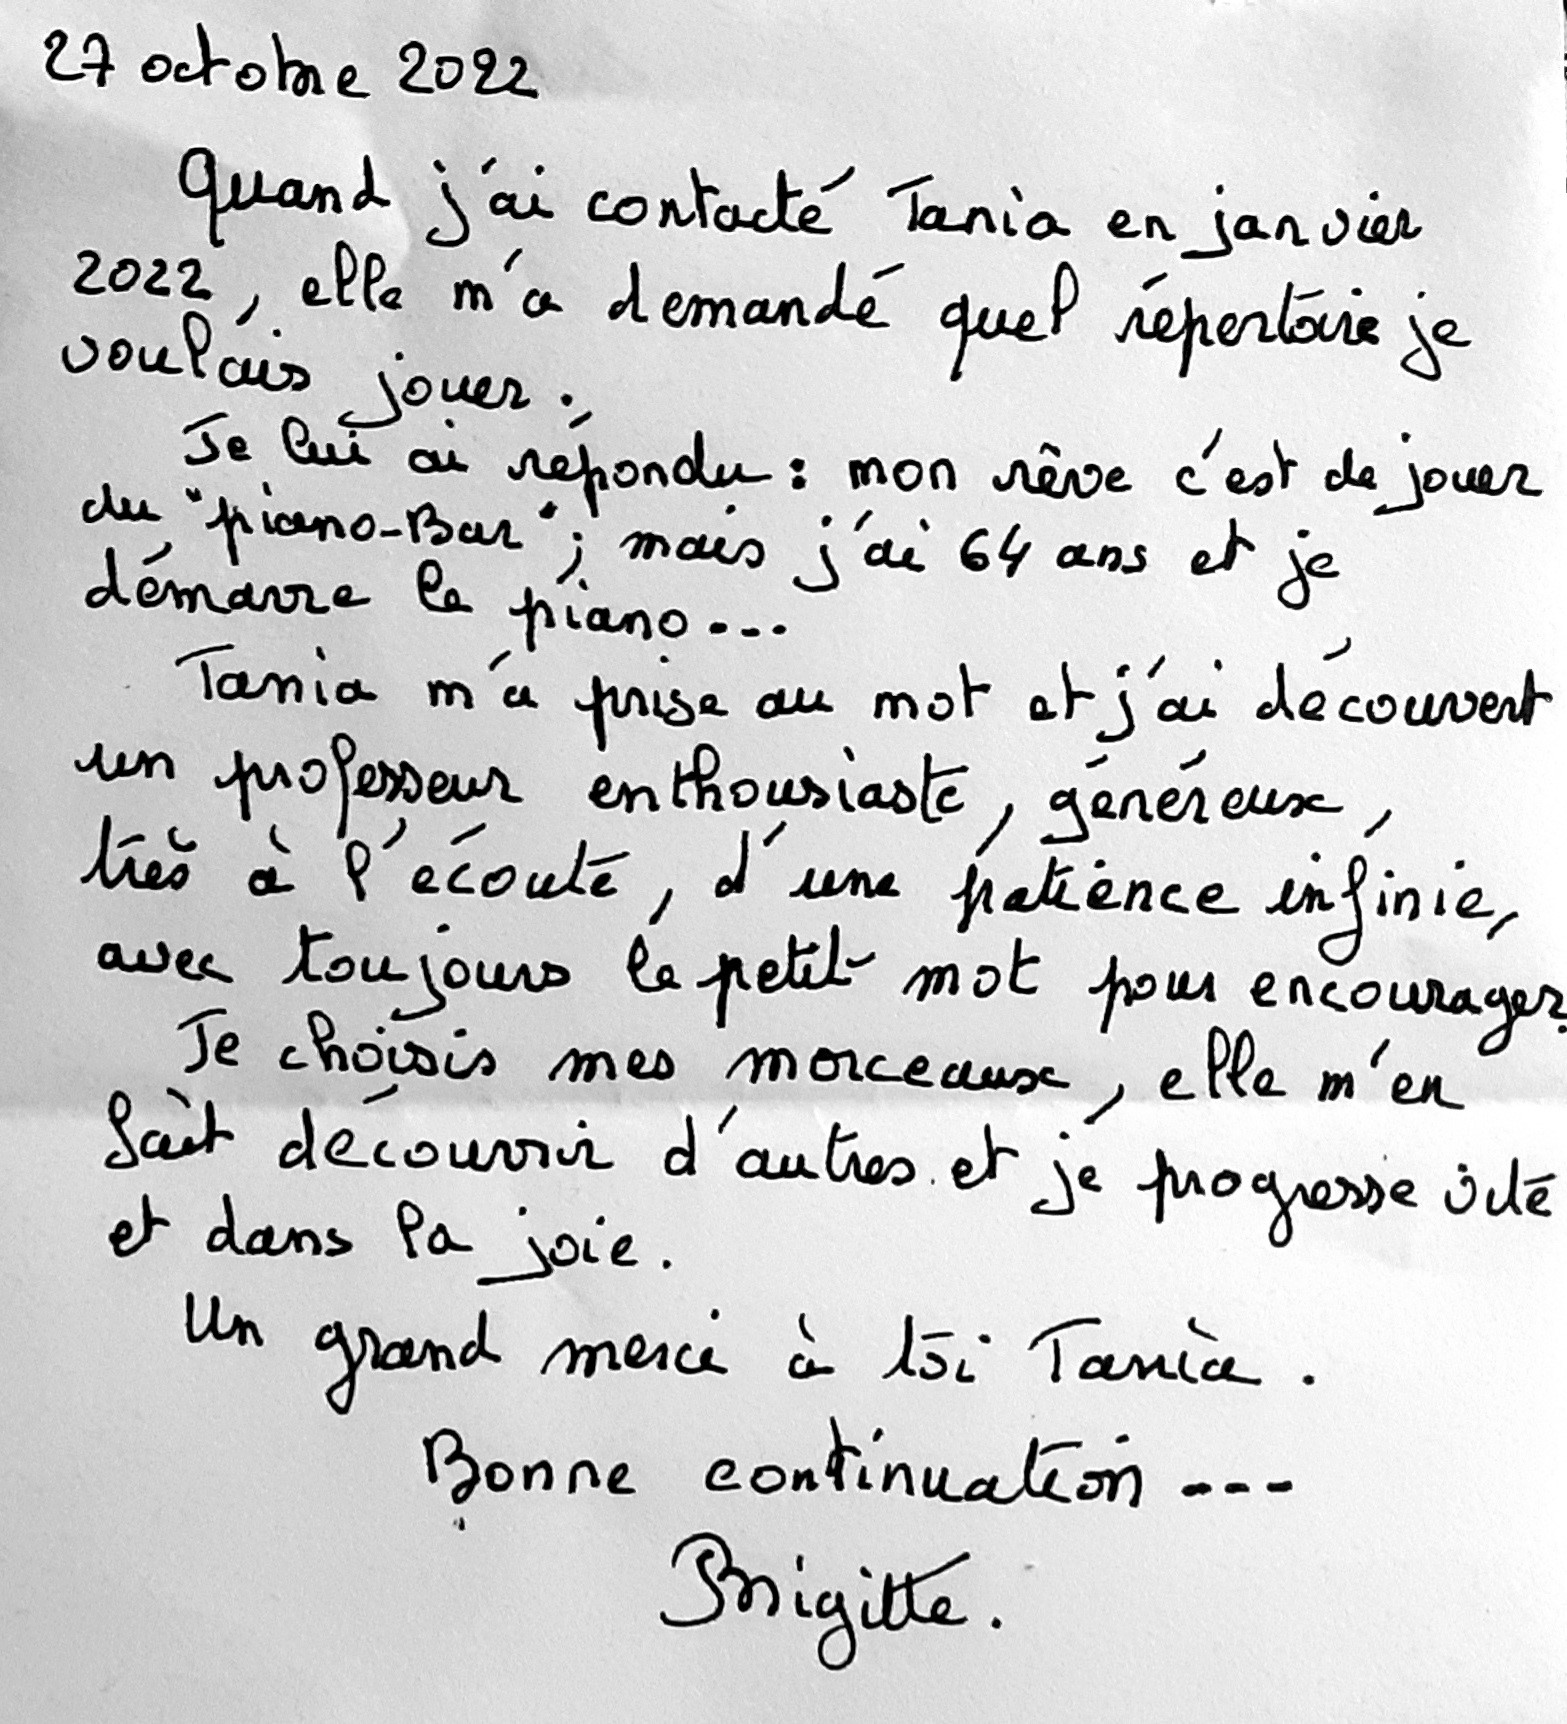 27 octobre 2022
Quand j'ai contacté Tania en janvier
2022, elle m'a demandé quel répertoire je
voulais jouer.
Je lui ai répondu : mon rêve c'est de jouer
du "piano-Bar" ; mais j'ai 64 ans et je
démarre le piano...
Tania m'a prise au mot et j'ai découvert
un professeur enthousiaste, généreux,
très à l'écoute, d'une patience infinie,
avec toujours le petit mot pour encourager.
Je choisis mes morceaux, elle m'en
fait découvrir d'autres et je progresse vite
et dans la joie.
Un grand merci à toi Tania.
Bonne continuation ---
Brigitte.